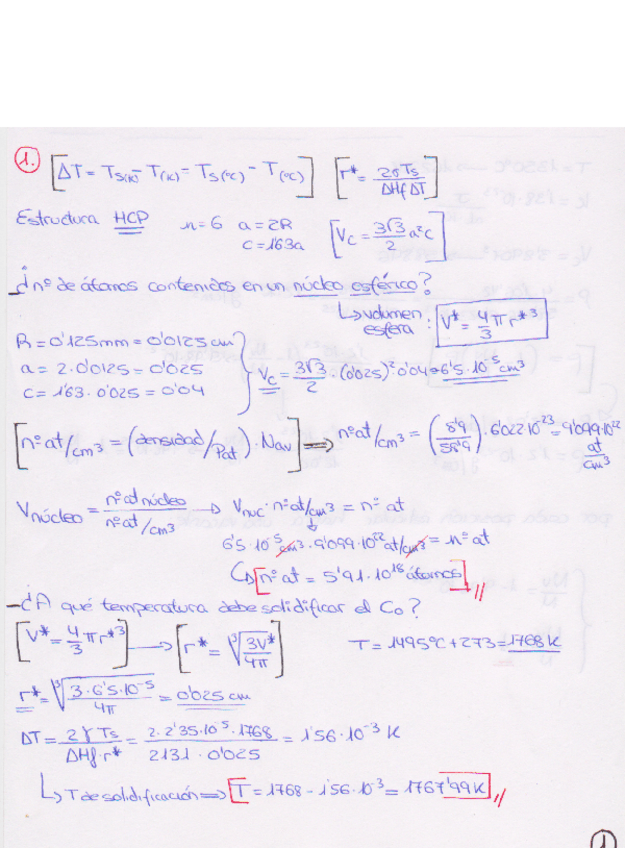 1. [ΔT = Ts(K) - T(K) = Ts(ºC) - T(ºC)] [r* = 2σTs / ΔHf ΔT]
Estructura HCP n=6 a=2R [Vc = 3√3/2 a²c]
c=1'63a
¿nº de átomos contenidos en un núcleo esférico?
↳ volumen esfera : V* = 4/3 π r*³
R = 0'125mm = 0'0125cm
a = 2·0'0125 = 0'025
c = 1'63·0'025 = 0'04
Vc = 3√3/2 · (0'025)²·0'04 = 6'5·10⁻⁵ cm³
[nº at/cm³ = (densidad/Pat)·Nav] ⟹ nº at/cm³ = (8'9/58'9)·6'022·10²³ = 9'099·10²² at/cm³
Vnúcleo = nº at núcleo / nº at/cm³ → Vnuc · nº at/cm³ = nº at
6'5·10⁻⁵ cm³ · 9'099·10²² at/cm³ = nº at
↳ [nº at = 5'91·10¹⁸ átomos]
- ¿A qué temperatura debe solidificar el Co?
[V* = 4/3 π r*³] → [r* = ∛(3V*/4π)] T = 1495ºC + 273 = 1768 K
r* = ∛(3·6'5·10⁻⁵/4π) = 0'025 cm
ΔT = 2γTs / ΔHf·r* = 2·2'35·10⁻⁵·1768 / 2131·0'025 = 1'56·10⁻³ K
↳ T de solidificación ⟹ [T = 1768 - 1'56·10⁻³ = 1767'99 K]
1